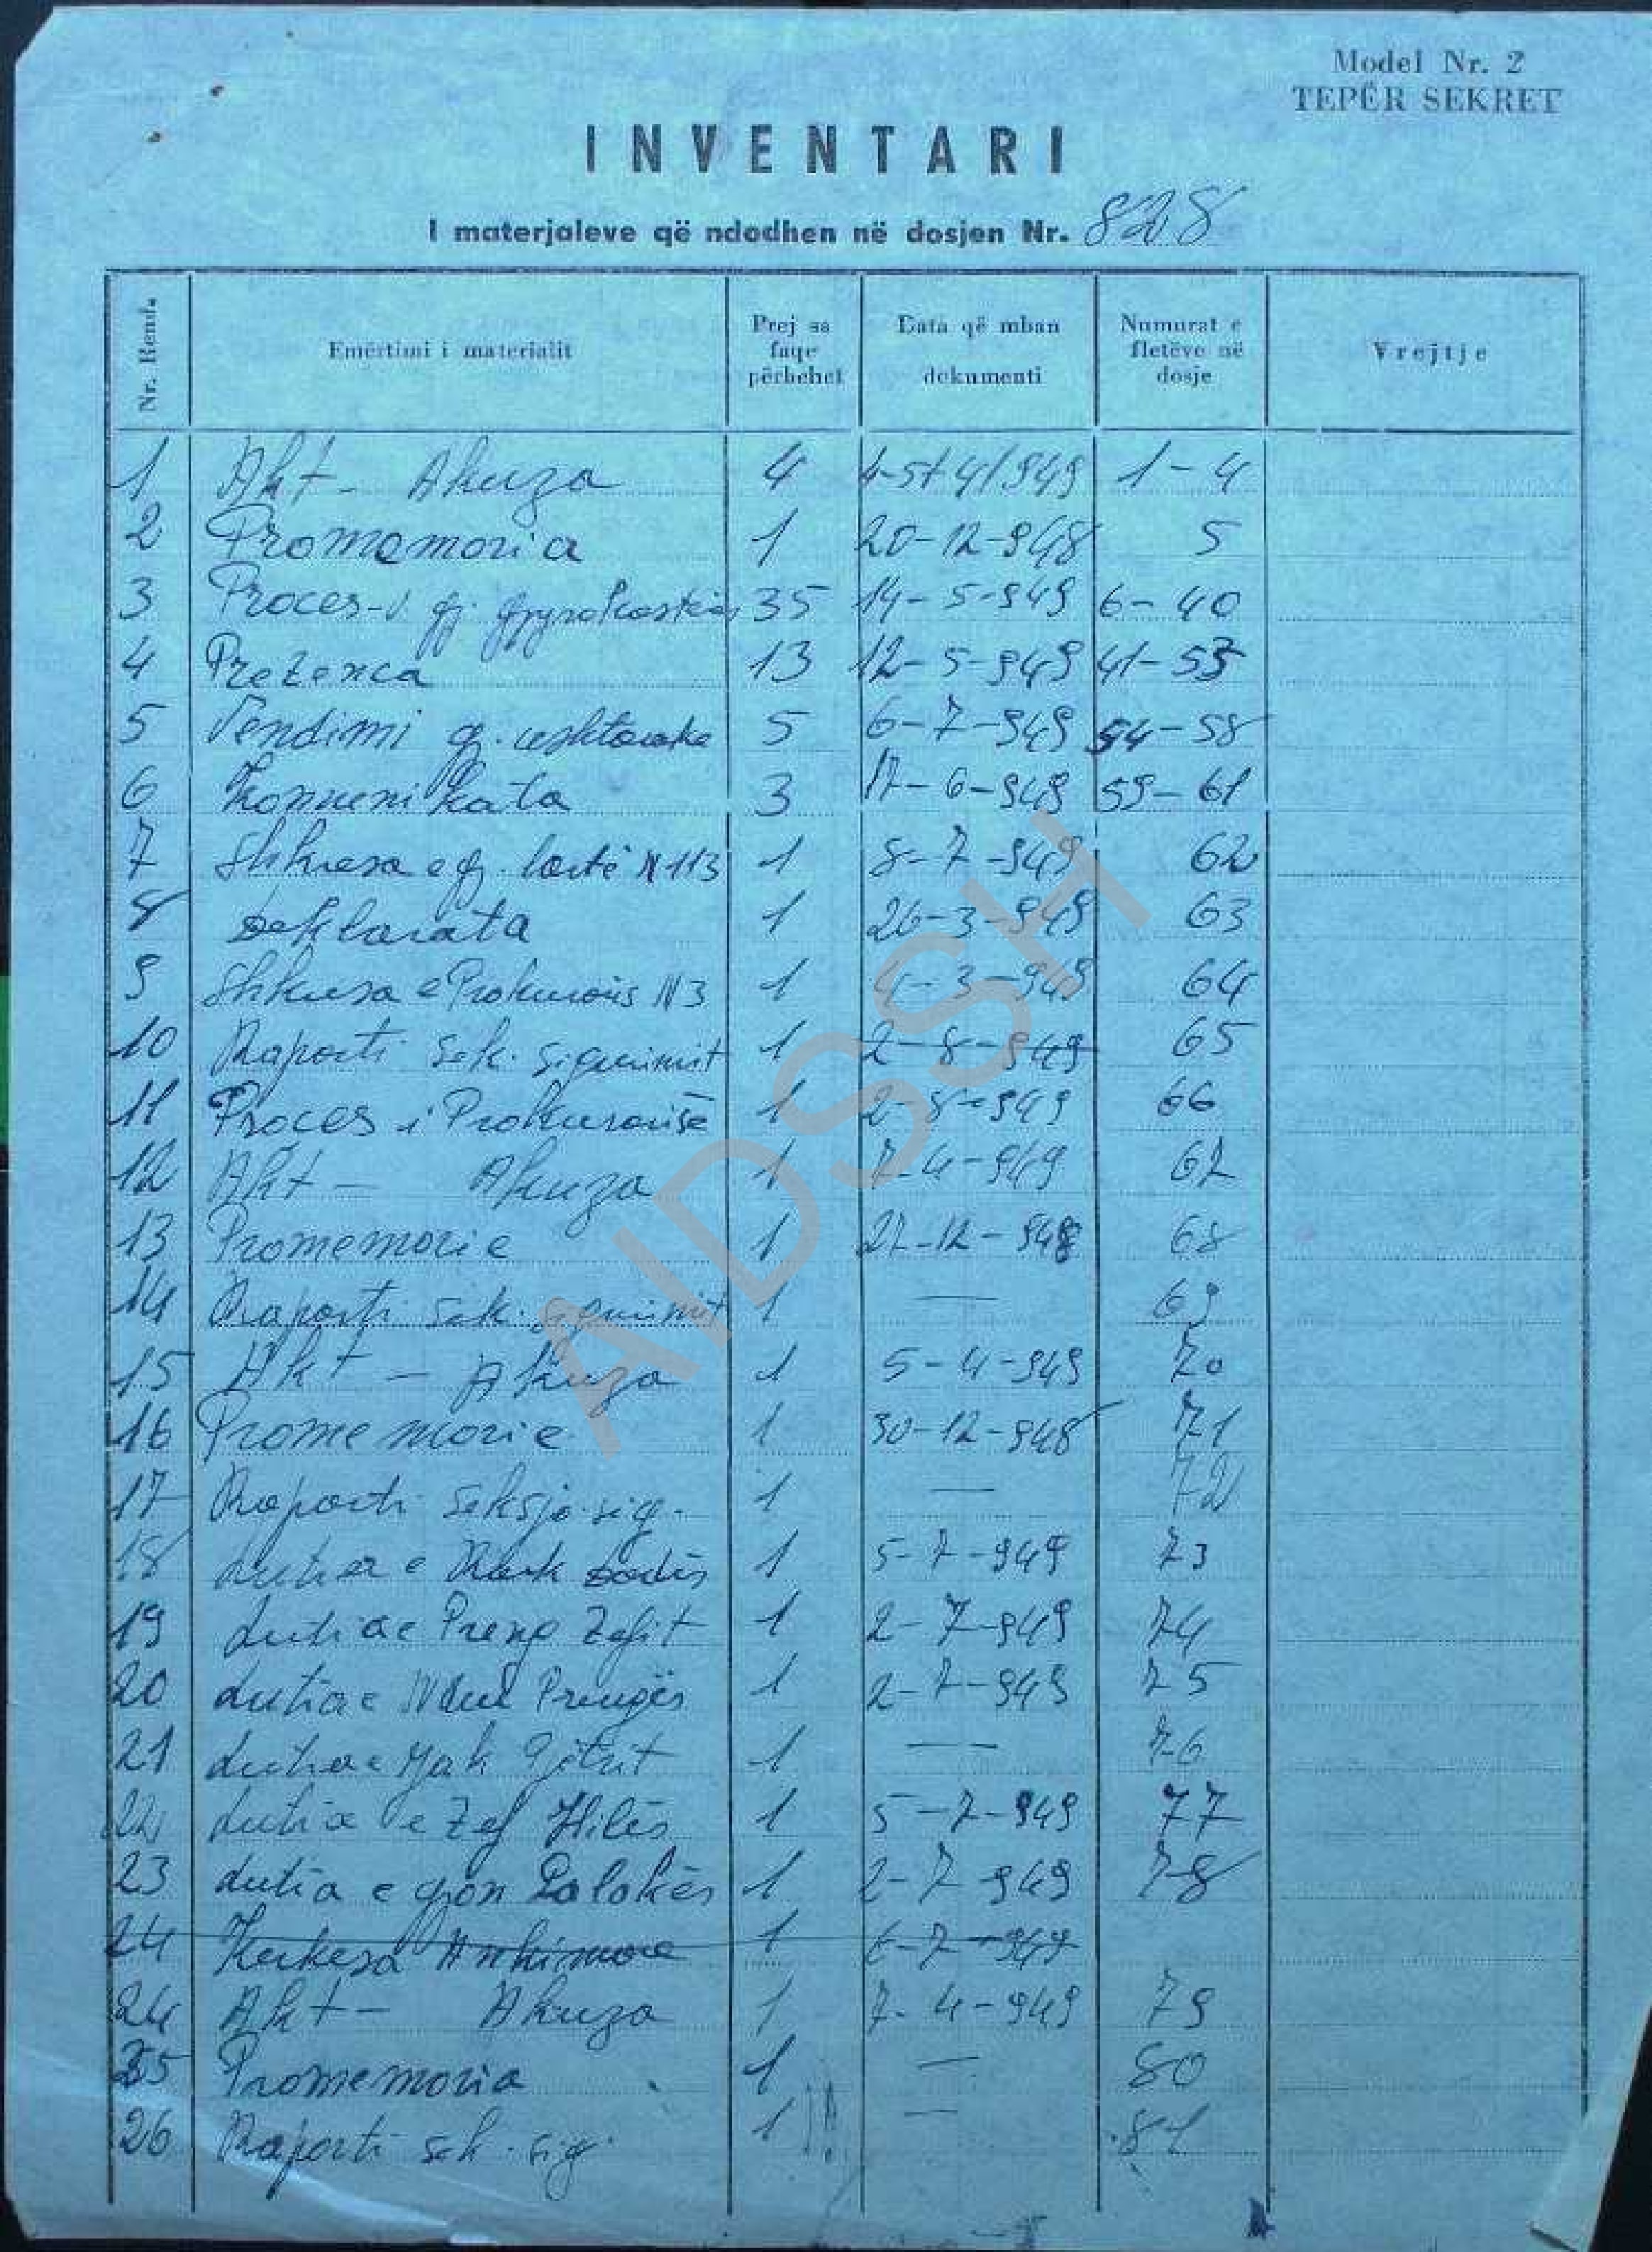 Model Nr. 2
TEPËR SEKRET
INVENTARI
I materjaleve që ndodhen në dosjen Nr. 828
Nr. Rendi Emërtimi i materialit Prej sa faqe përbehet Data që mban dokumenti Numurat e fletëve në dosje Vrejtje
1 Akt - Akuza 4 4/949 1-4
2 Promemoria 1 20-12-948 5
3 Proces-v. gj. gjyrokastrës 35 14-5-949 6-40
4 Pretenca 13 12-5-949 41-53
5 Vendimi gj. ushtarake 5 6-7-949 54-58
6 Komunikata 3 17-6-949 59-61
7 Shkresa e gj. lartë N 113 1 8-7-949 62
8 Deklarata 1 26-3-949 63
9 Shkresa e Prokuroris N 3 1 4-3-949 64
10 Raporti sek. sigurimit 1 2-8-949 65
11 Proces i Prokurorisë 1 2-8-949 66
12 Akt - Akuza 1 7-4-949 67
13 Promemorie 1 27-12-948 68
14 Raporti sek. sigurimit 1 — 69
15 Akt - Akuza 1 5-4-949 70
16 Promemorie 1 30-12-948 71
17 Raporti seksjo. sig. 1 — 72
18 Lutja e Mark Dodës 1 5-7-949 73
19 Lutja e Preng Zefit 1 2-7-949 74
20 Lutja e Ndue Prengës 1 2-7-949 75
21 Lutja e Mark 1 — 76
22 Lutja e Zef Hilës 1 5-7-949 77
23 Lutja e Gjon Palokës 1 2-7-949 78
24 Kerkesa Ankimore 1 6-7-949
24 Akt - Akuza 1 7-4-949 79
25 Promemoria 1 — 80
26 Raporti sek. sig. 1 — 81
AIDSSH